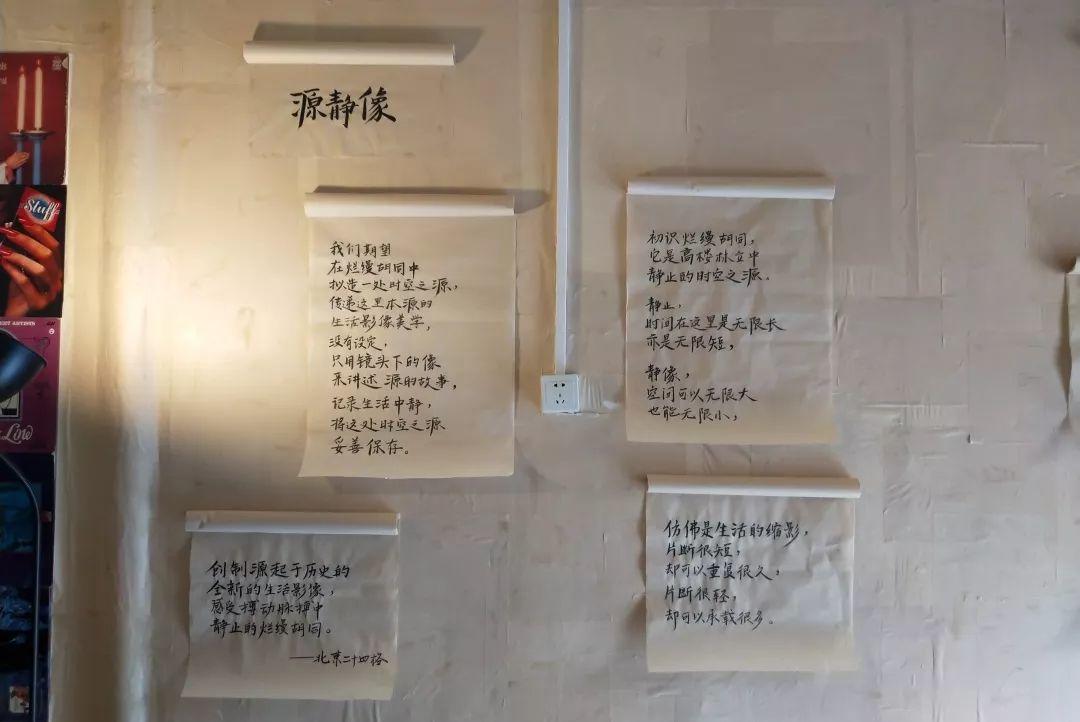 源静像
我们期望
在烂缦胡同中
拟造一处时空之源，
传递这里本源的
生活影像美学，
没有设定，
只用镜头下的像
来讲述 源的故事，
记录生活中静，
将这处时空之源
妥善保存。
初识烂缦胡同，
它是高楼林立中
静止的时空之源。
静止，
时间在这里是无限长
亦是无限短，
静像，
空间可以无限大
也能无限小，
创制源起于历史的
全新的生活影像，
感受搏动脉搏中
静止的烂缦胡同。
——北京二十四格
仿佛是生活的缩影，
片断很短，
却可以重复很久，
片断很轻，
却可以承载很多。
Stuff
Low